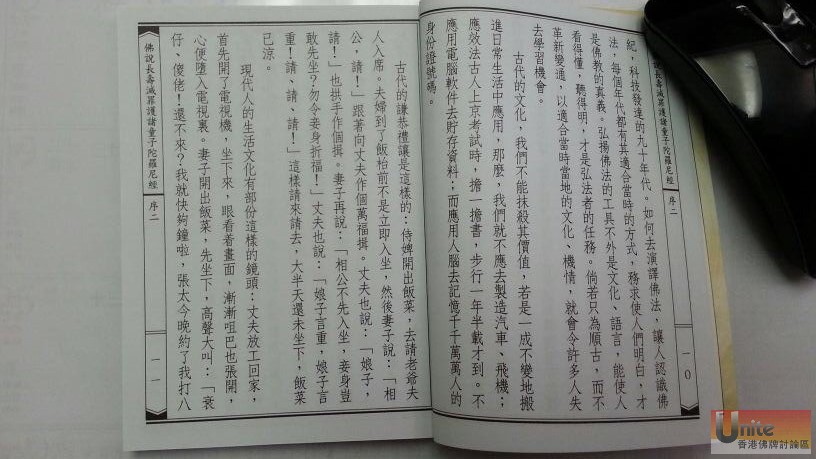 佛說長壽滅罪護諸童子陀羅尼經 序二
一〇
紀，科技發達的九十年代。如何去演譯佛法，讓人認識佛
法，每個年代都有其適合當時的方式，務求使人們明白，才
是佛教的真義。弘揚佛法的工具不外是文化、語言，能使人
看得懂，聽得明，才是弘法者的任務。倘若只為順古，而不
革新變通，以適合當時當地的文化、機情，就會令許多人失
去學習機會。
古代的文化，我們不能抹殺其價值，若是一成不變地搬
進日常生活中應用，那麼，我們就不應去製造汽車、飛機；
應效法古人上京考試時，擔一擔書，步行一年半載才到。不
應用電腦軟件去貯存資料；而應用人腦去記憶千千萬萬人的
身份證號碼。
古代的謙恭禮讓是這樣的：侍婢開出飯菜，去請老爺夫
人入席。夫婦到了飯枱前不是立即入坐，然後妻子說：「相
公，請！」跟著向丈夫作個萬福揖。丈夫也說：「娘子，
請！」也拱手作個揖。妻子再說：「相公不先入坐，妾身豈
敢先坐？勿令妾身折福！」丈夫也說：「娘子言重，娘子言
重！請，請、請！」這樣請來請去，大半天還未坐下，飯菜
已涼。
現代人的生活文化有部份這樣的鏡頭：丈夫放工回家，
首先開了電視機，坐下來，眼看着畫面，漸漸咀巴也張開，
心便墮入電視裏。妻子開出飯菜，先坐下，高聲大叫：「衰
仔、傻佬！還不來？我就快夠鐘啦，張太今晚約了我打八
佛說長壽滅罪護諸童子陀羅尼經 序二
一一
Unite
香港佛牌討論區